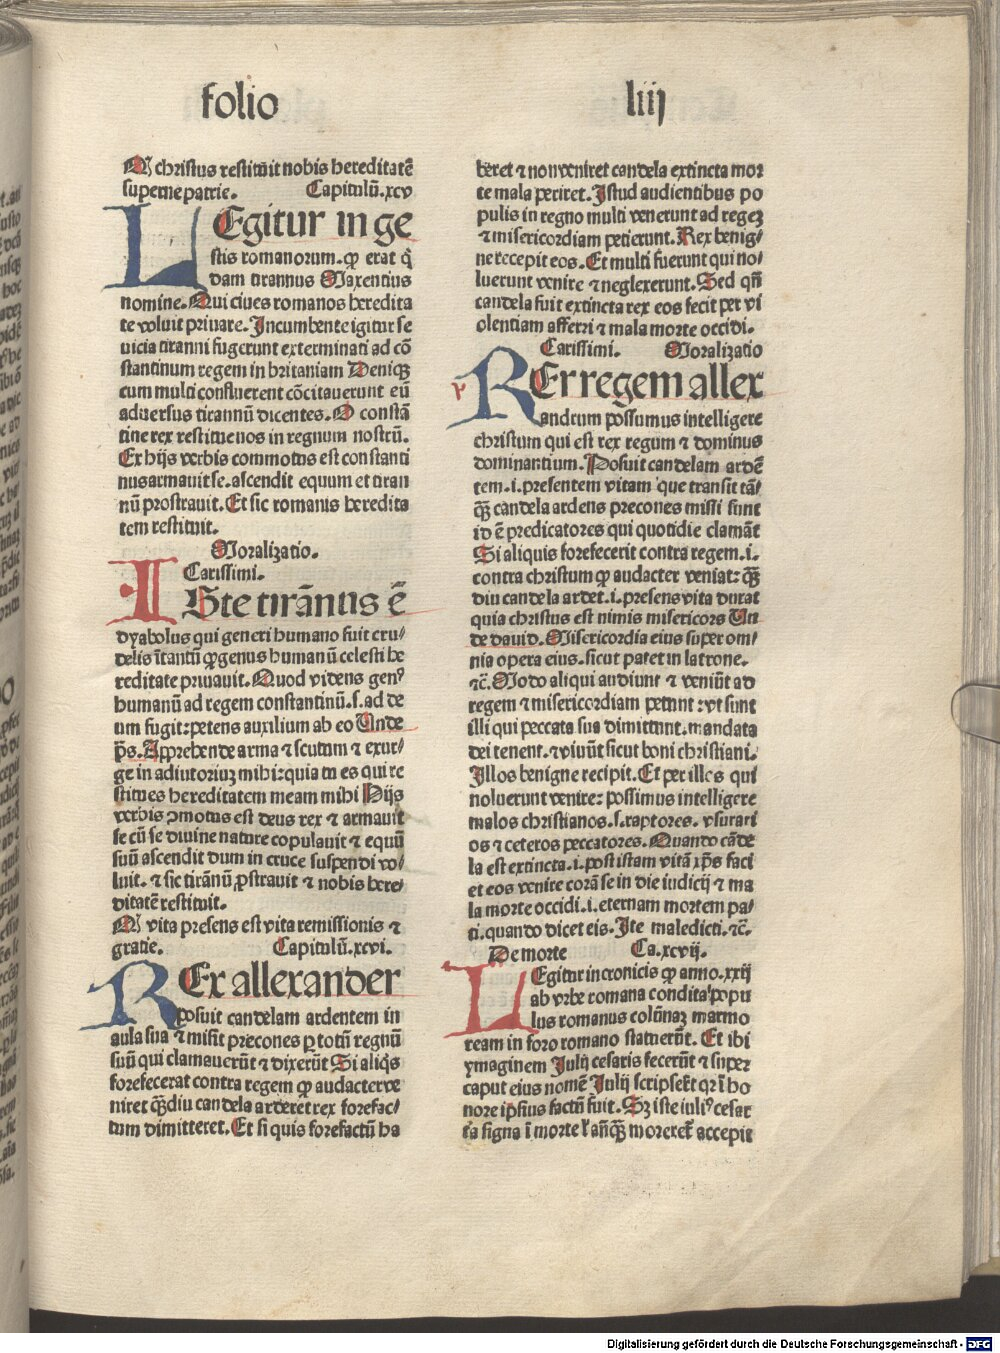 folio liij
Q christus restituit nobis hereditatē
superne patrie. Capitulū.xcv
LEgitur in ge
stis romanorum. qp erat q̇
dam tirannus Maxentius
nomine. Qui ciues romanos heredita
te voluit priuare. Incumbente igitur se
uicia tiranni fugerunt exterminati ad cō
stantinum regem in britaniam Deniqꝫ
cum multi confluerent cōcitauerunt eū
aduersus tirannū dicentes. O constā
tine rex restitue nos in regnum nostrū.
Ex hijs verbis commotus est constanti
nus armauit se. ascendit equum et tiran
nū prostrauit. Et sic romanis heredita
tem restituit.
Moralizatio.
Carissimi.
ISte tirānus ē
dyabolus qui generi humano fuit cru⸗
delis ītantū qp genus humanū celesti he
reditate priuauit. Quod videns genꝰ
humanū ad regem constantinū.s. ad de
um fugit: petens auxilium ab eo Unde
p̄s. Apprehende arma ⁊ scutum ⁊ exur⸗
ge in adiutoriuꝫ mihi: quia tu es qui re
stitues hereditatem meam mihi Hijs
verbis ꝯmotus est deus rex ⁊ armauit
se cū se diuine nature copulauit ⁊ equū
suū ascendit dum in cruce suspendi vo⸗
luit. ⁊ sic tirānū ꝓstrauit ⁊ nobis here⸗
ditatē restituit.
Q vita presens est vita remissionis ⁊
gratie. Capitulū.xcvi.
REx allexander
posuit candelam ardentem in
aula sua ⁊ misit precones ꝑ totū regnū
suū qui clamauerūt ⁊ dixerūt Si aliq̇s
forefecerat contra regem qp audacter ve
niret qꝫdiu candela arderet rex forefac⸗
tum dimitteret. Et si quis forefactū ha
beret ⁊ non veniret candela extincta mor
te mala periret. Istud audientibus po
pulis in regno multi venerunt ad regeꝫ
⁊ misericordiam petierunt. Rex benig⸗
ne recepit eos. Et multi fuerunt qui no⸗
luerunt venire ⁊ neglexerunt. Sed qn̄
candela fuit extincta rex eos fecit per vi
olentiam afferri ⁊ mala morte occidi.
Carissimi. Moralizatio
r
REr regem allex
andrum possumus intelligere
christum qui est rex regum ⁊ dominus
dominantium. Posuit candelam ardē
tem.i. presentem vitam que transit tā⸗
qꝫ candela ardens precones missi sunt
id ē predicatores qui quotidie clamāt
Si aliquis forefecerit contra regem.i.
contra christum qp audacter veniat: qꝫ
diu candela ardet.i. presens vita durat
quia christus est nimis misericors Un
de dauid. Misericordia eius super om⸗
nia opera eius. sicut patet in latrone.
⁊c̄. Modo aliqui audiunt ⁊ veniūt ad
regem ⁊ misericordiam petunt: vt sunt
illi qui peccata sua dimittunt. mandata
dei tenent. ⁊ viuūt sicut boni christiani.
Illos benigne recipit. Et per illos qui
noluerunt venire: possimus intelligere
malos christianos.s. raptores. vsurari
os ⁊ ceteros peccatores. Quando cāde
la est extincta.i. post istam vitā xp̄s faci
et eos venire corā se in die iudicij ⁊ ma
la morte occidi.i. eternam mortem pa⸗
ti. quando dicet eis. Ite maledicti. ⁊c̄.
De morte Ca.xcvij.
LEgitur in cronicis qp anno.xxij
ab vrbe romana condita popu
lus romanus colūnaꝫ marmo
ream in foro romano statuerūt. Et ibi
ymaginem Julij cesaris fecerūt ⁊ super
caput eius nomē Julij scripserūt qr ī ho
nore ipsius factū fuit. Sꝫ iste iuliꝰ cesar
tria signa ī morte l̓ an̄qꝫ moreret̓ accepit